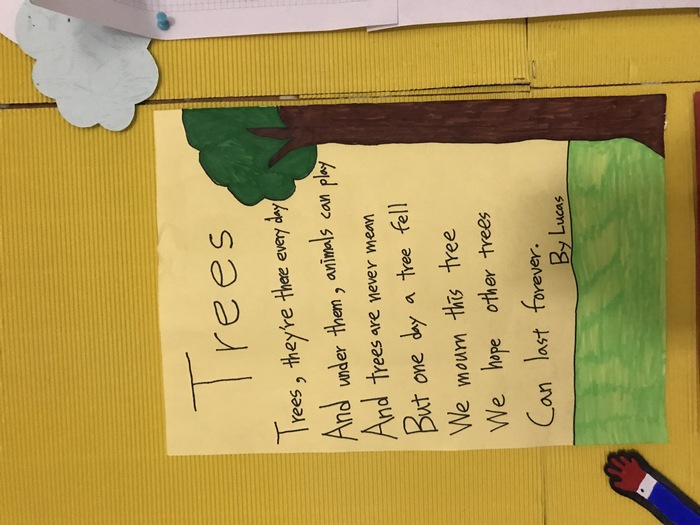 Trees
Trees, they're there every day
And under them, animals can play
And trees are never mean
But one day a tree fell
We mourn this tree
We hope other trees
Can last forever.
By Lucas